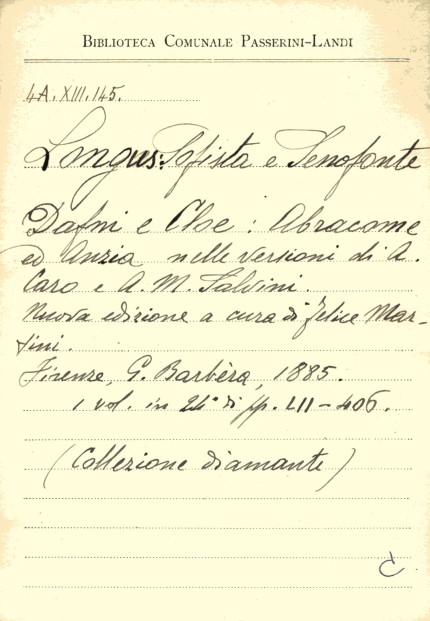 Biblioteca Comunale Passerini-Landi
4A.XIII.145.
Longus: Sofista e Senofonte
Dafni e Cloe: Abracome
ed Anzia nelle versioni di A.
Caro e A. M. Salvini.
Nuova edizione a cura di Felice Mar-
tini.
Firenze, G. Barbèra, 1885.
1 vol. in 24° di pp. LII-406.
(Collezione diamante)
C